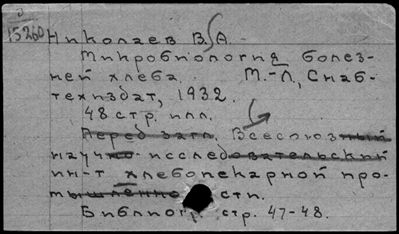 15260
Николаев В. А.
Микробиология болез-
ней хлеба. М.-Л, Снаб-
техиздат, 1932.
48 стр. илл.
Перед загл. Всесоюзный
научно-исследовательский
ин-т хлебопекарной про-
мышленно сти.
Библиогр. стр. 47-48.